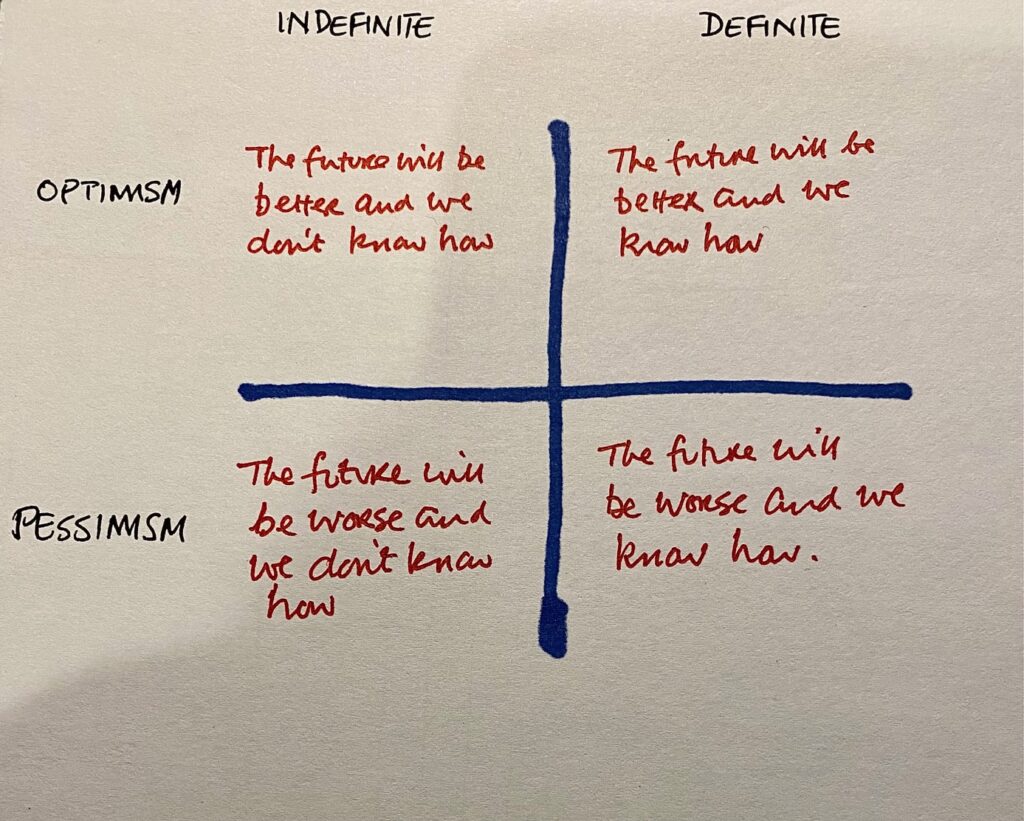 INDEFINITE
DEFINITE
OPTIMISM
The future will be
better and we
don't know how
The future will be
better and we
know how
PESSIMISM
The future will
be worse and
we don't know
how
The future will
be worse and we
know how.